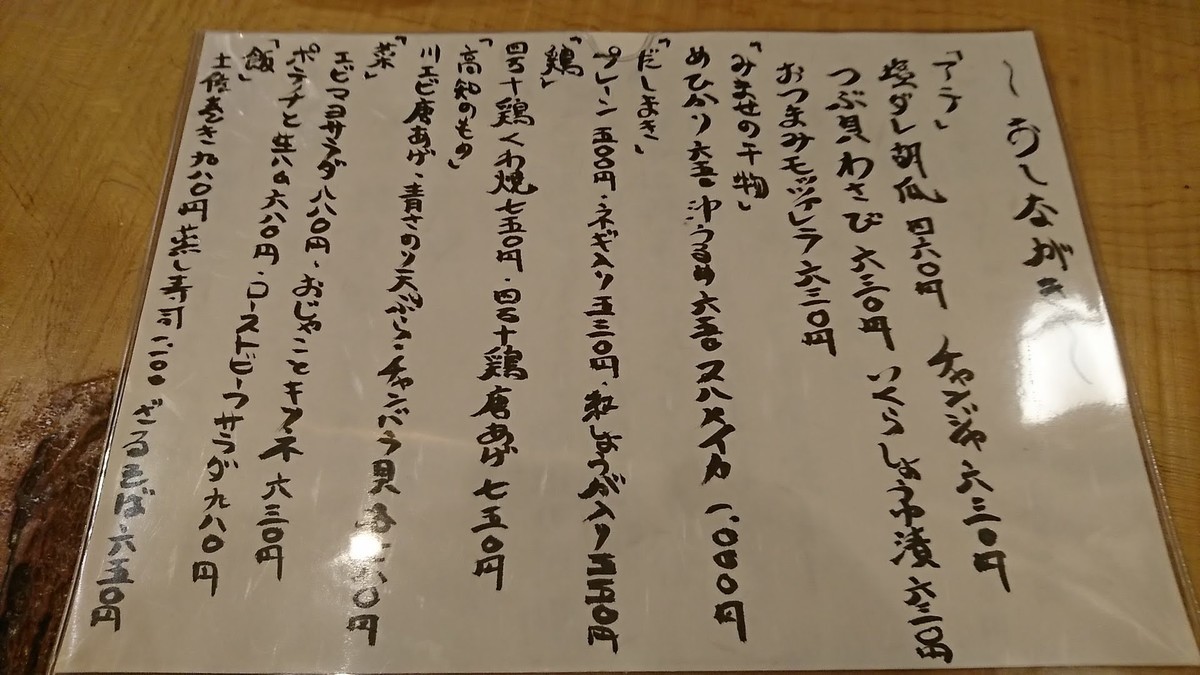 〜おしながき
「アテ」
塩ダレ胡瓜 四六〇円 チャンジャ 六三〇円
つぶ貝わさび 六三〇円 いくらしょう油漬 六三〇円
おつまみモッツァレラ 六三〇円
「みませの干物」
めひかり 六五〇 沖うるめ 六五〇 スルメイカ 一、〇〇〇円
「だしまき」
プレーン 五〇〇円・ネギ入り 五三〇円・紅しょうが入り 五五〇円
「鶏」
四万十鶏くわ焼 七五〇円・四万十鶏唐あげ 七五〇円
「高知のもの」
川エビ唐あげ・青さのり天ぷら・チャンバラ貝 各 円
「菜」
エビマヨサラダ 八八〇円・おじゃことキヌ 六三〇円
ポテナと生ハム 六八〇円・ローストビーフサラダ 九八〇円
「飯」
土佐巻き 九八〇円 蒸し寿司 一、一〇〇 ざるそば 六五〇円